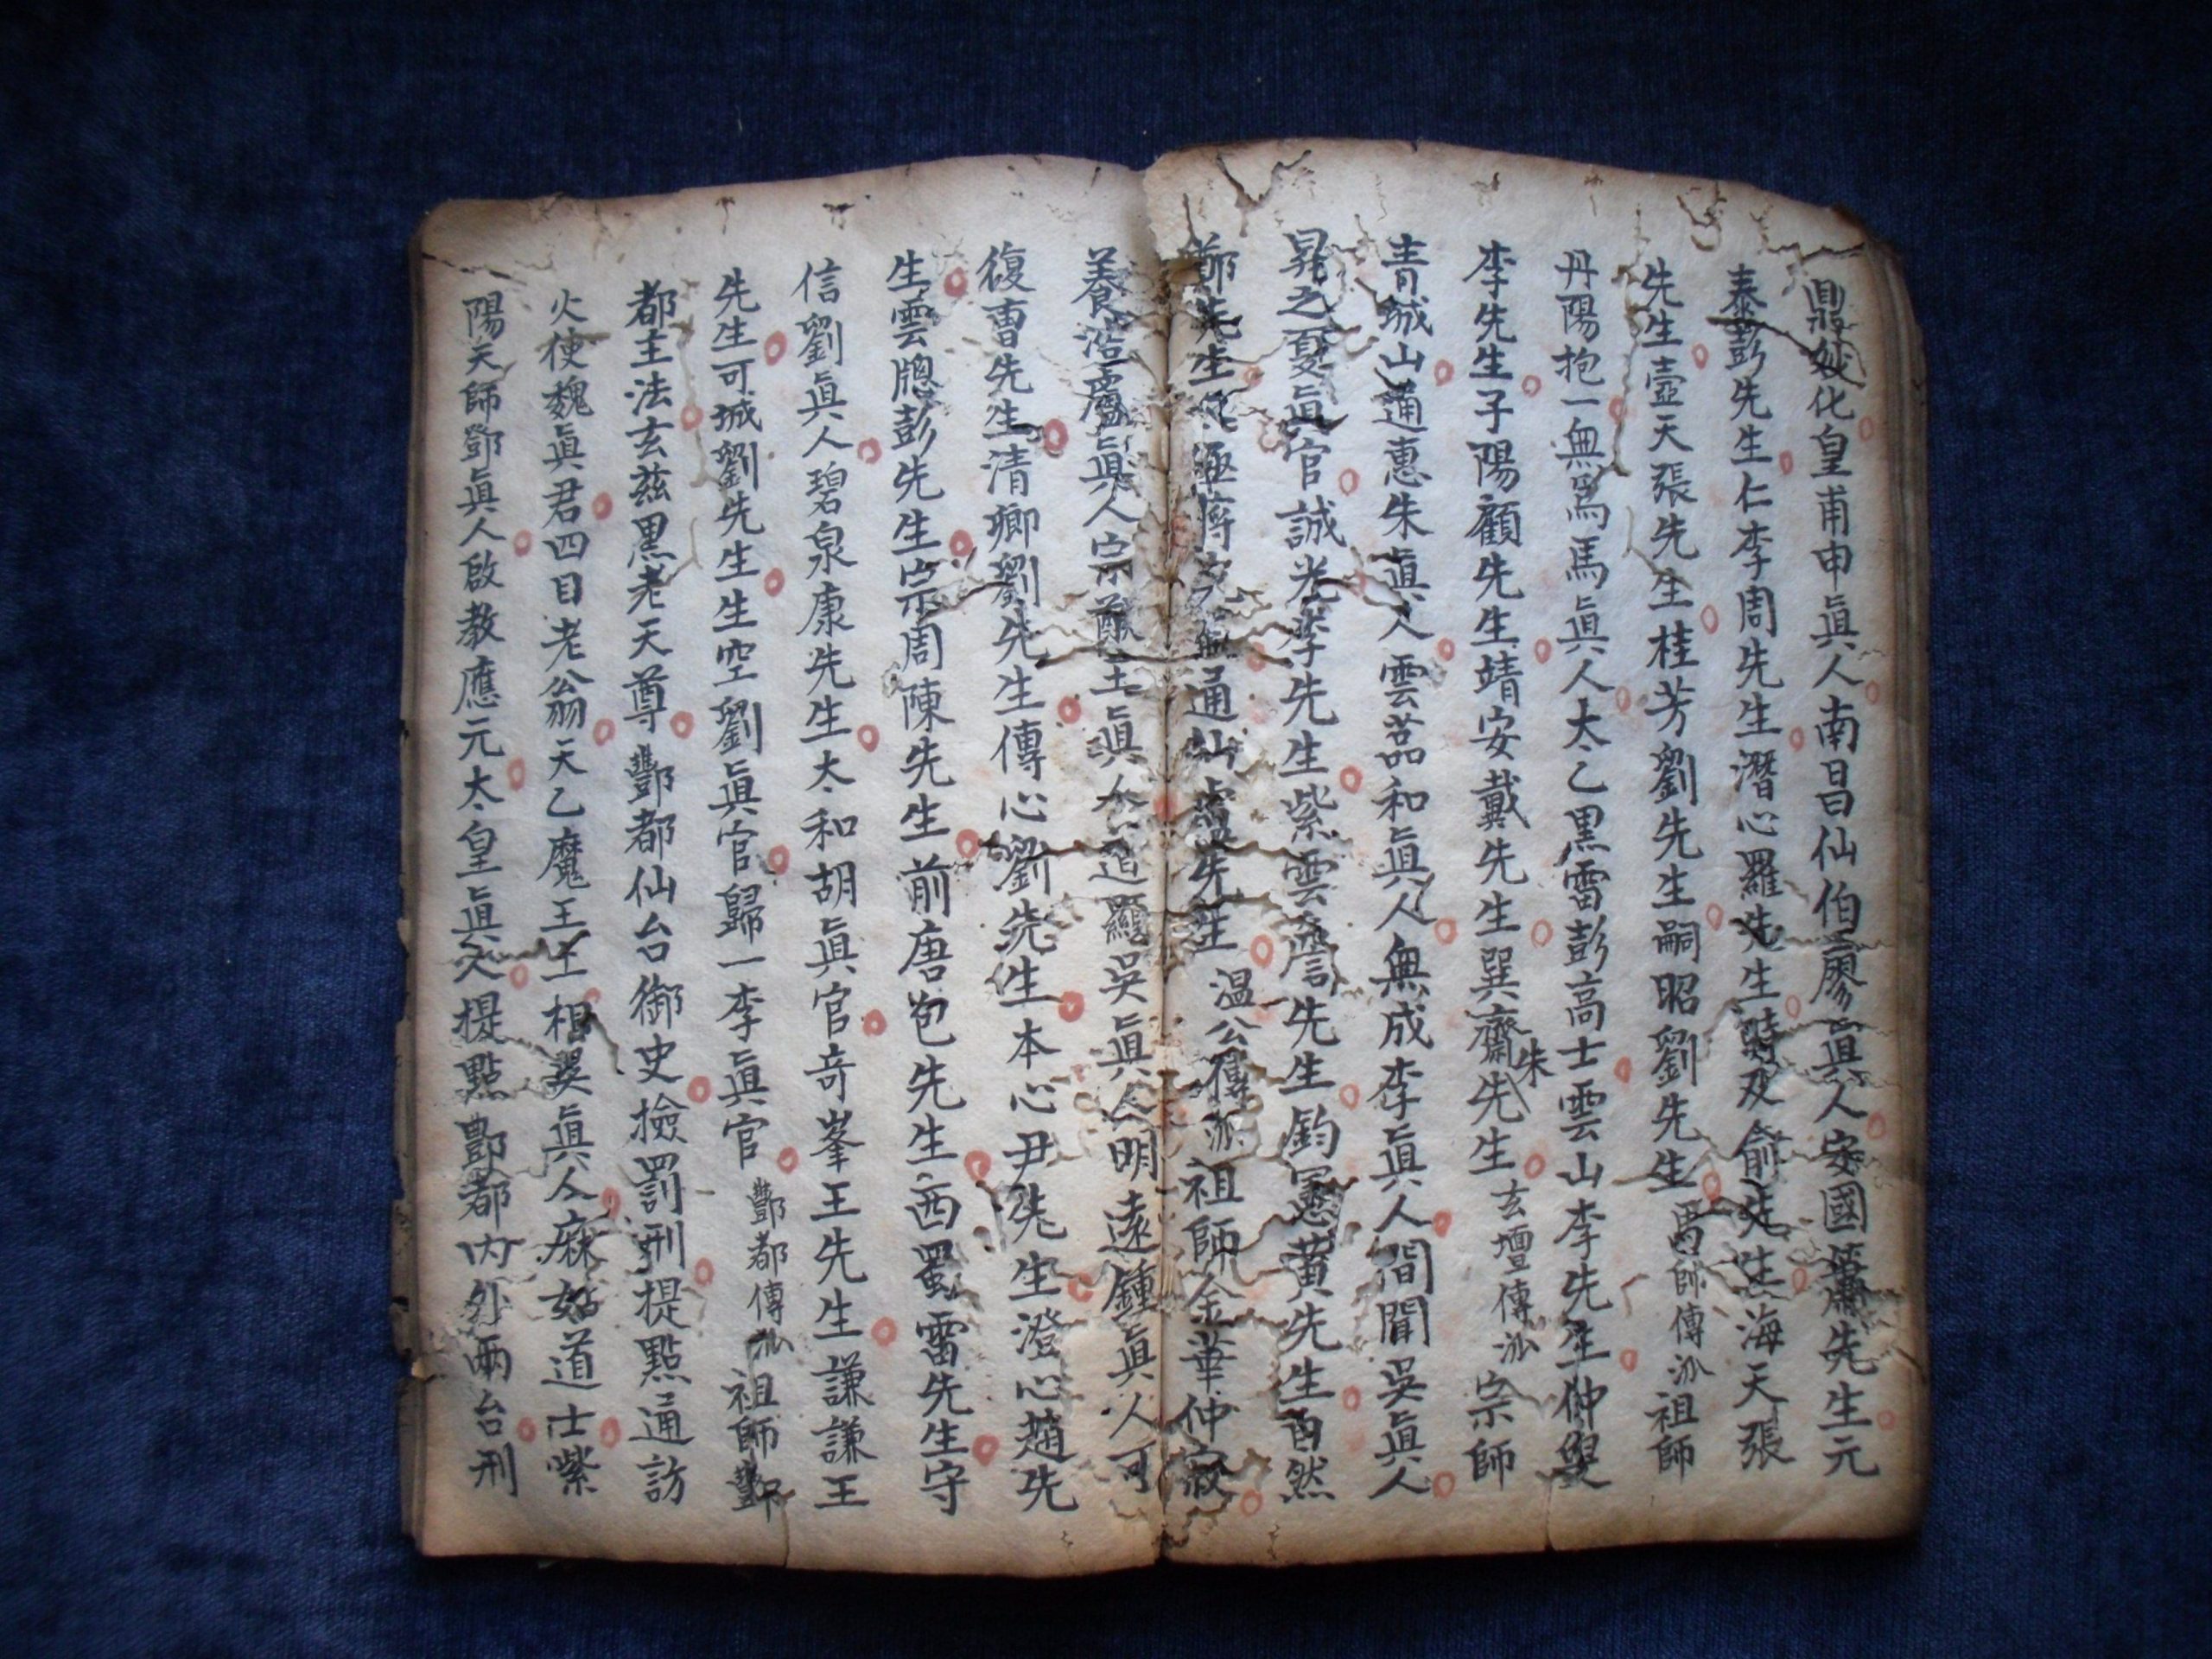 鼎妙化皇甫申眞人南昌仙伯廖眞人安國蕭先生元
泰彭先生仁李周先生潛心羅先生時及俞先生海天張
先生壺天張先生桂芳劉先生嗣昭劉先生 帥傳派 祖師
丹陽抱一無爲馬眞人太乙黑雷彭高士雲山李先生仲
李先生子陽顧先生靖安戴先生巽齋朱先生 玄壇傳派 宗師
青城山通惠朱眞人雲菴和眞人無成李眞人閭聞吳眞人
晃之夏眞官誠光李先生紫雲詹先生鈞憲黄先生自然
鄭先生極蔣 通仙盧先生 温公傳派 祖師金華仲寂
養浩盧眞人宗 王眞人道顯吳眞人明遠鍾眞人可
復曹先生清卿劉先生傳心劉先生本心尹先生澄心趙先
生雲牕彭先生宗周陳先生前唐苞先生西蜀雷先生守
信劉眞人碧泉康先生太和胡眞官奇峯王先生謙謙王
先生可城劉先生生空劉眞官歸一李眞官 酆都傳派 祖師酆
都主法玄茲黑老天尊酆都仙台御史撿罰刑提點通訪
火使魏眞君四目老翁天乙魔王王相 眞人麻姑道士紫
陽夫師鄧眞人啟教應元太皇眞人提點酆都內外兩台刑